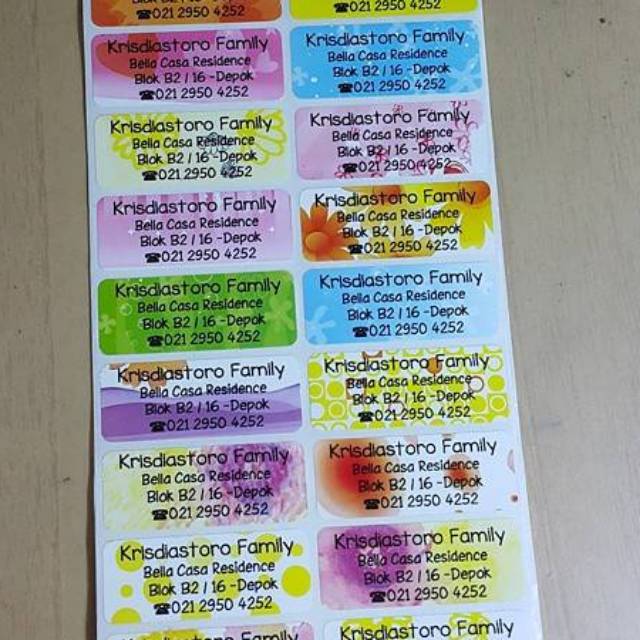 Blok B2 / 16 -Depok
☎021 2950 4252
☎021 2950 4252
Krisdiastoro Family
Bella Casa Residence
Blok B2 / 16 -Depok
☎021 2950 4252
Krisdiastoro Family
Bella Casa Residence
Blok B2 / 16 -Depok
☎021 2950 4252
Krisdiastoro Family
Bella Casa Residence
Blok B2 / 16 -Depok
☎021 2950 4252
Krisdiastoro Family
Bella Casa Residence
Blok B2 / 16 -Depok
☎021 2950 4252
Krisdiastoro Family
Bella Casa Residence
Blok B2 / 16 -Depok
☎021 2950 4252
Krisdiastoro Family
Bella Casa Residence
Blok B2 / 16 -Depok
☎021 2950 4252
Krisdiastoro Family
Bella Casa Residence
Blok B2 / 16 -Depok
☎021 2950 4252
Krisdiastoro Family
Bella Casa Residence
Blok B2 / 16 -Depok
☎021 2950 4252
Krisdiastoro Family
Bella Casa Residence
Blok B2 / 16 -Depok
☎021 2950 4252
Krisdiastoro Family
Bella Casa Residence
Blok B2 / 16 -Depok
☎021 2950 4252
Krisdiastoro Family
Bella Casa Residence
Blok B2 / 16 -Depok
☎021 2950 4252
Krisdiastoro Family
Bella Casa Residence
Blok B2 / 16 -Depok
☎021 2950 4252
Krisdiastoro Family
Bella Casa Residence
Blok B2 / 16 -Depok
☎021 2950 4252
Krisdiastoro Family
Bella Casa Residence
Blok B2 / 16 -Depok
☎021 2950 4252
Krisdiastoro Family
Krisdiastoro Family